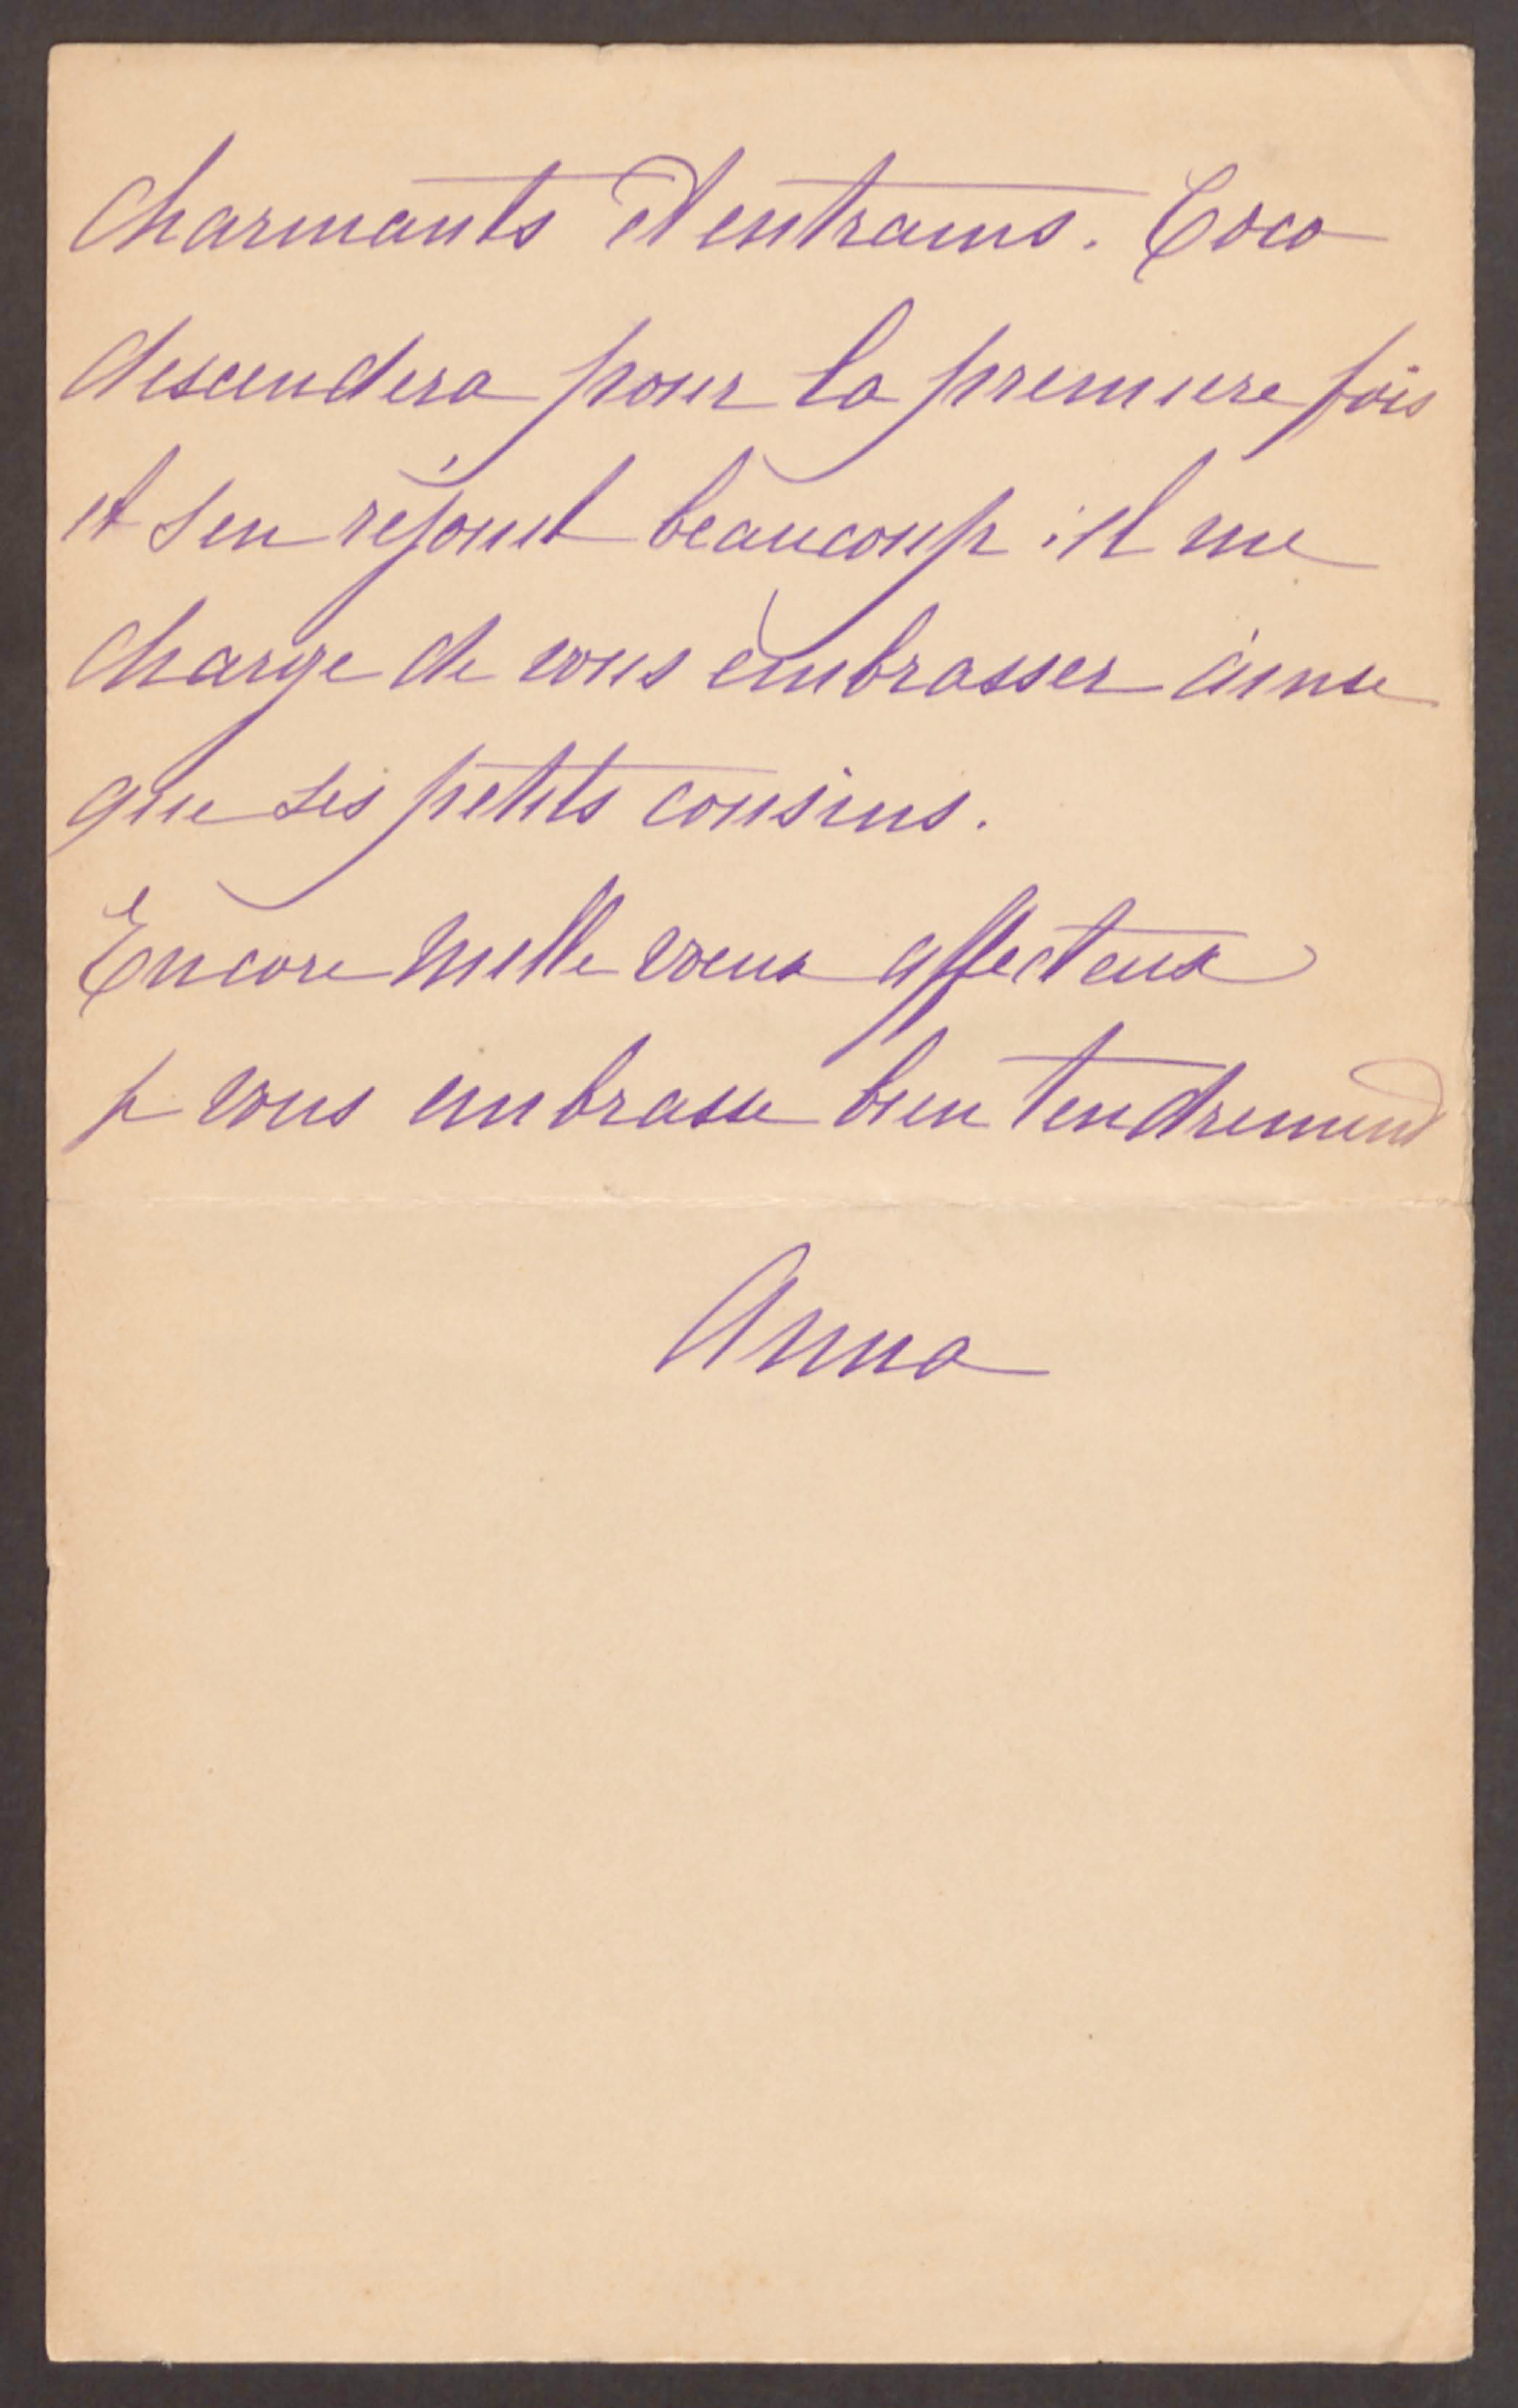 charmants et entrains. Coco
descendera pour la premiere fois
et s'en réjouit beaucoup : il me
charge de vous embrasser ainsi
que ses petits cousins.
Encore mille voeux affecteux
je vous embrasse bien tendrement
Anna